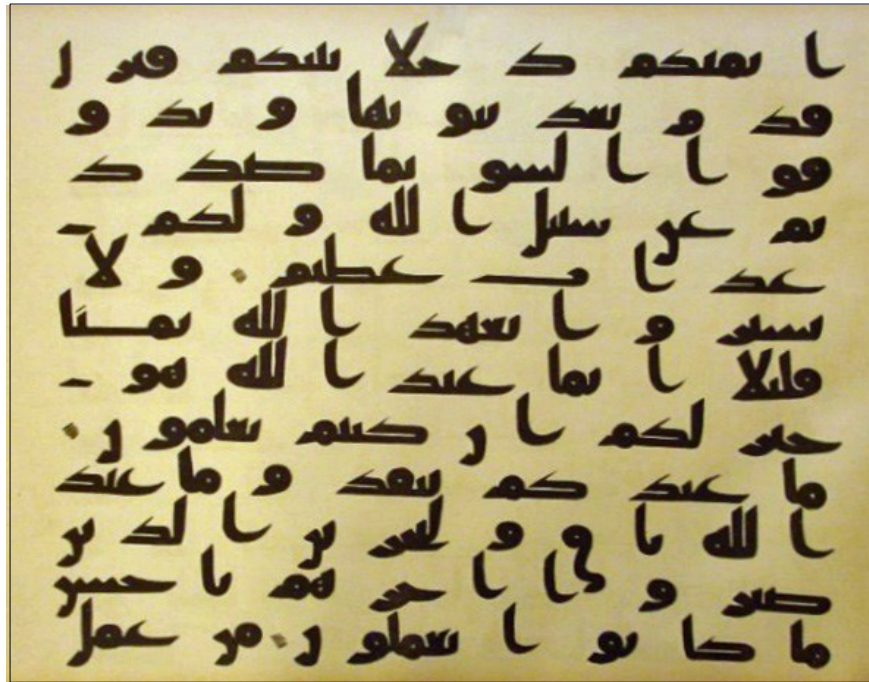 ايمنكم دخلا بينكم فتزل
قدم بعد ثبوتها وتذو
قوا السو بما صدد
تم عن سبيل الله ولكم
عذاب عظيم ولا
تشتروا بعهد الله ثمنا
قليلا انما عند الله هو
خير لكم ان كنتم تعلمون
ما عندكم ينفد وما عند
الله باق ولنجزين الذين
صبروا اجرهم باحسن
ما كانوا يعملون من عمل